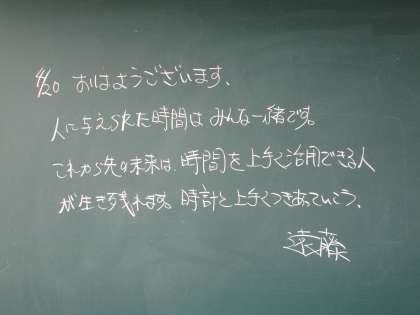 4/20 おはようございます、
人に与えられた時間はみんな一緒です。
これから先の未来は、時間を上手く活用できる人
が生き残れます。時計と上手くつきあっていこう、
遠藤